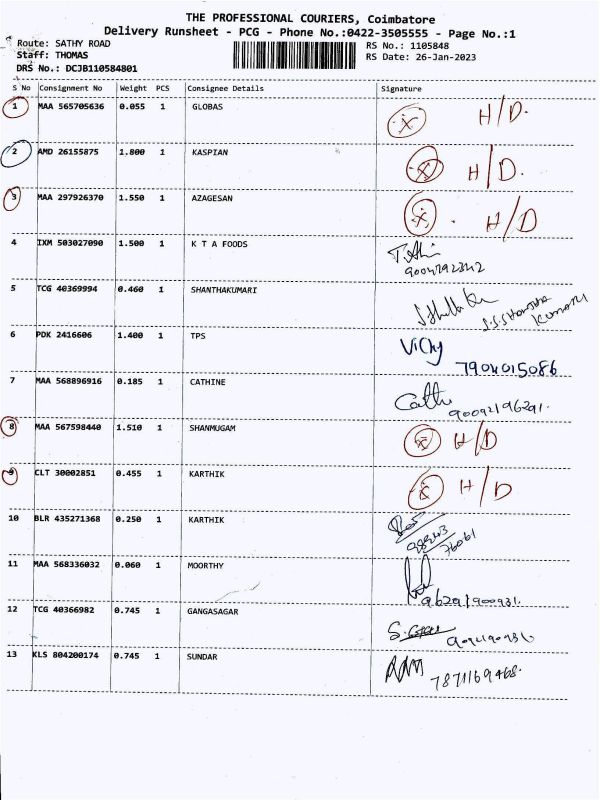 THE PROFESSIONAL COURIERS, Coimbatore
Delivery Runsheet - PCG - Phone No.:0422-3505555 - Page No.:1
Route: SATHY ROAD RS No.: 1105848
Staff: THOMAS RS Date: 26-Jan-2023
DRS No.: DCJB110584801
S No Consignment No Weight PCS Consignee Details Signature
1 MAA 565705636 0.055 1 GLOBAS H/D.
2 AMD 26155875 1.800 1 KASPIAN H/D.
3 MAA 297926370 1.550 1 AZAGESAN H/D
4 IXM 503027090 1.500 1 K T A FOODS
9004792342
5 TCG 40369994 0.460 1 SHANTHAKUMARI
6 PDK 2416606 1.400 1 TPS Vicky
7904015086
7 MAA 568896916 0.185 1 CATHINE
8 MAA 567598440 1.510 1 SHANMUGAM H/D
9 CLT 30002851 0.455 1 KARTHIK H/D
10 BLR 435271368 0.250 1 KARTHIK
98943
76061
11 MAA 568336032 0.060 1 MOORTHY
12 TCG 40366982 0.745 1 GANGASAGAR
13 KLS 804200174 0.745 1 SUNDAR
7871169468.